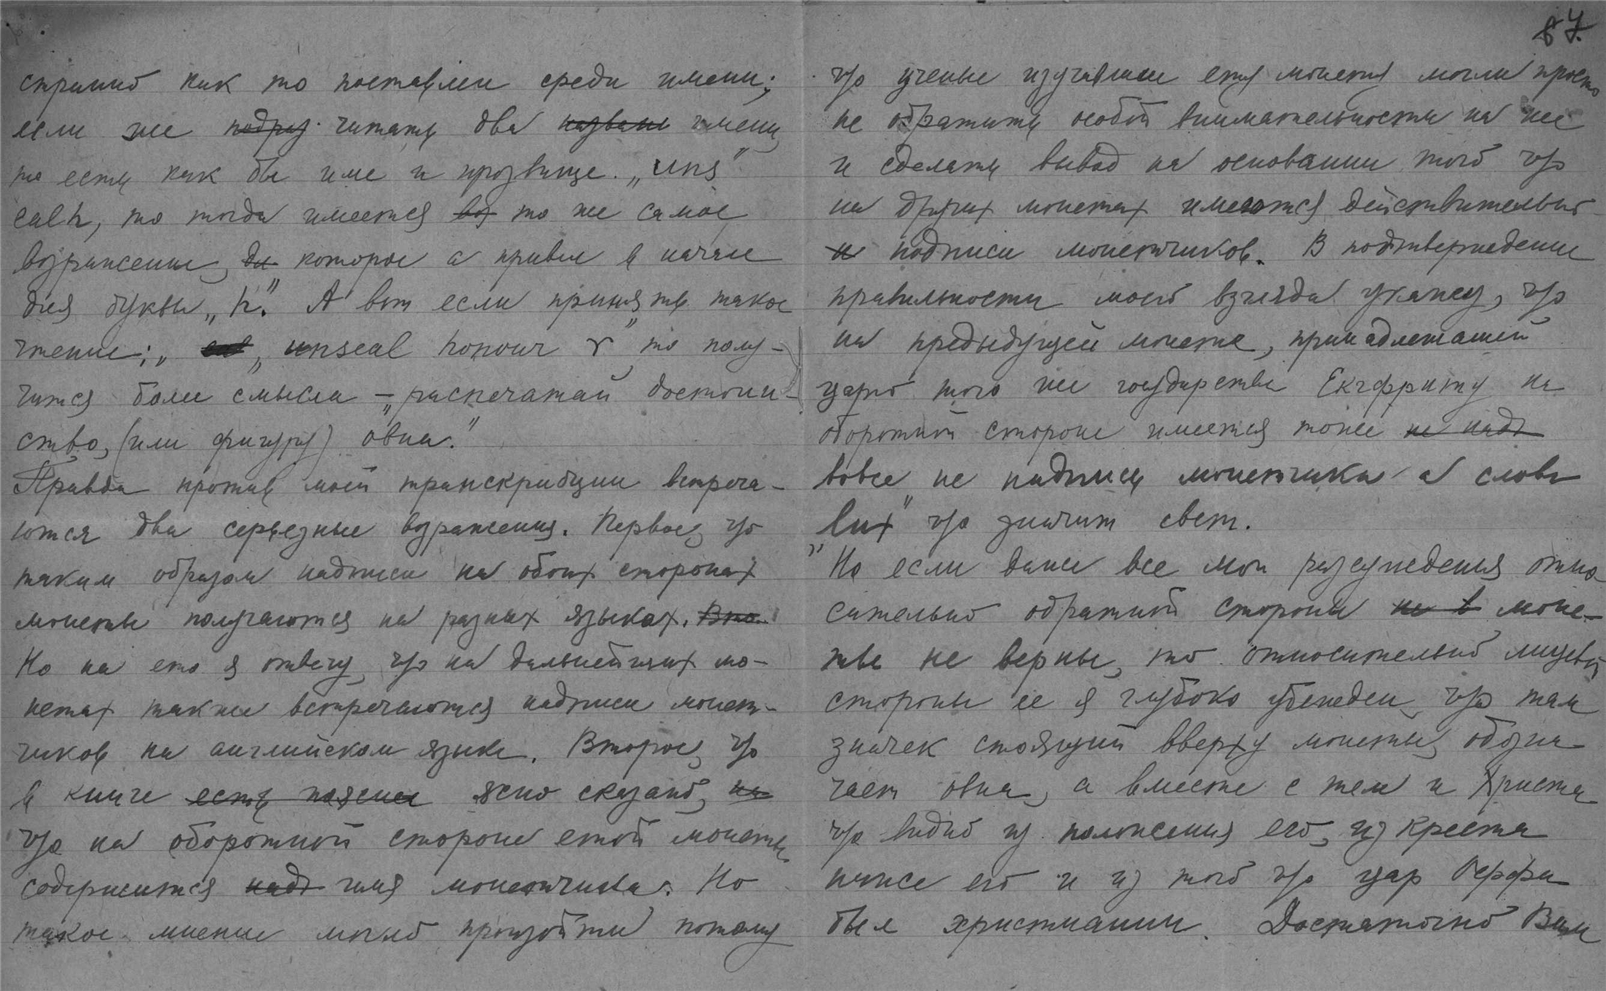 87.
странно как то поставлен среди имени;
если же подраз. читать два названи имени
то есть как бы имя и прозвище. „uns"
calh, то тогда имеется воз то же самое
возражение, ди которое я привел в начале
для буквы „h". А вот если принять такое
чтение: „unseal honour ♈", то полу-
чится более смысла – „распечатай достоин-
ство, (или фигуру) овна."
Правда против моей транскрибции встреча-
ются два серьезные возражения. Первое, что
таким образом надписи на обоих сторонах
монеты получаются на разных языках. Вто.
Но на ето я отвечу, что на дальнейших мо-
нетах также встречаются надписи монет-
чиков на английском языке. Второе, что
в книге есть ясно сказано, на
что на оборотной стороне етой монеты
содержится надп имя монетчика. Но
такое мнение могло произойти потому
что ученые изучавшие ету монету могли просто
не обратить особой внимательности на нее
и сделать вывод на основании того что
на других монетах имеются действительно
и подписи монетчиков. В подтверждение
правильности моего взгляда укажу, что
на предыдущей монете, принадлежащей
царю того же государства Екгфриту на
оборотной стороне имеется тоже не надп
вовсе не надпись монетчика а слово
„lux" что значит свет.
Но если даже все мои разсуждения отно-
сительно обратной стороны не в моне-
ты не верны, то относительно лицевой
стороны ее я глубоко убежден, что там
значек стоящий вверху монеты, обозна-
чает овна, а вместе с тем и Христа
что видно из положения его, из креста
ниже его и из того что цар
был христианин. Достаточно Вам